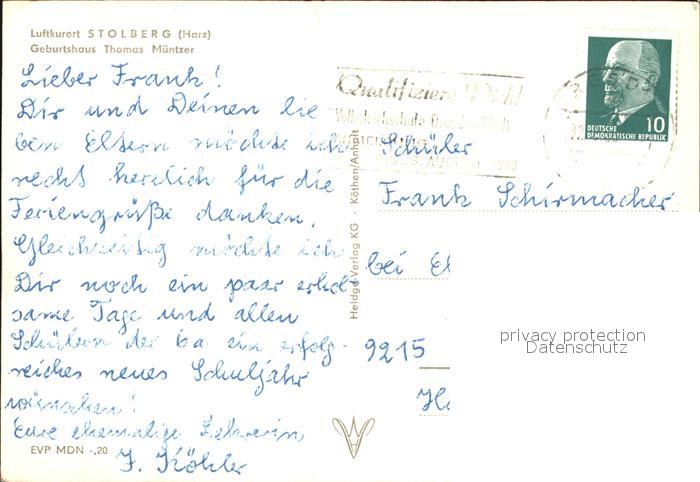 Luftkurort STOLBERG (Harz)
Geburtshaus Thomas Müntzer
Lieber Frank!
Dir und Deinen lie
ben Eltern möchte ich
recht herzlich für die
Feriengrüße danken.
Gleichzeitig möchte ich
Dir noch ein paar erhol
same Tage und allen
Schülern der 6a ein erfolg-
reiches neues Schuljahr
wünschen!
Eure ehemalige Lehrerin
J. Köhler
EVP MDN -,20
Heldge-Verlag KG · Köthen/Anhalt
Qualifiziere Dich!
Volkshochschule Dresden Stadt
DEUTSCHE
DEMOKRATISCHE REPUBLIK
10
Schüler
Frank Schirmacher
bei El
9215
privacy protection
Datenschutz